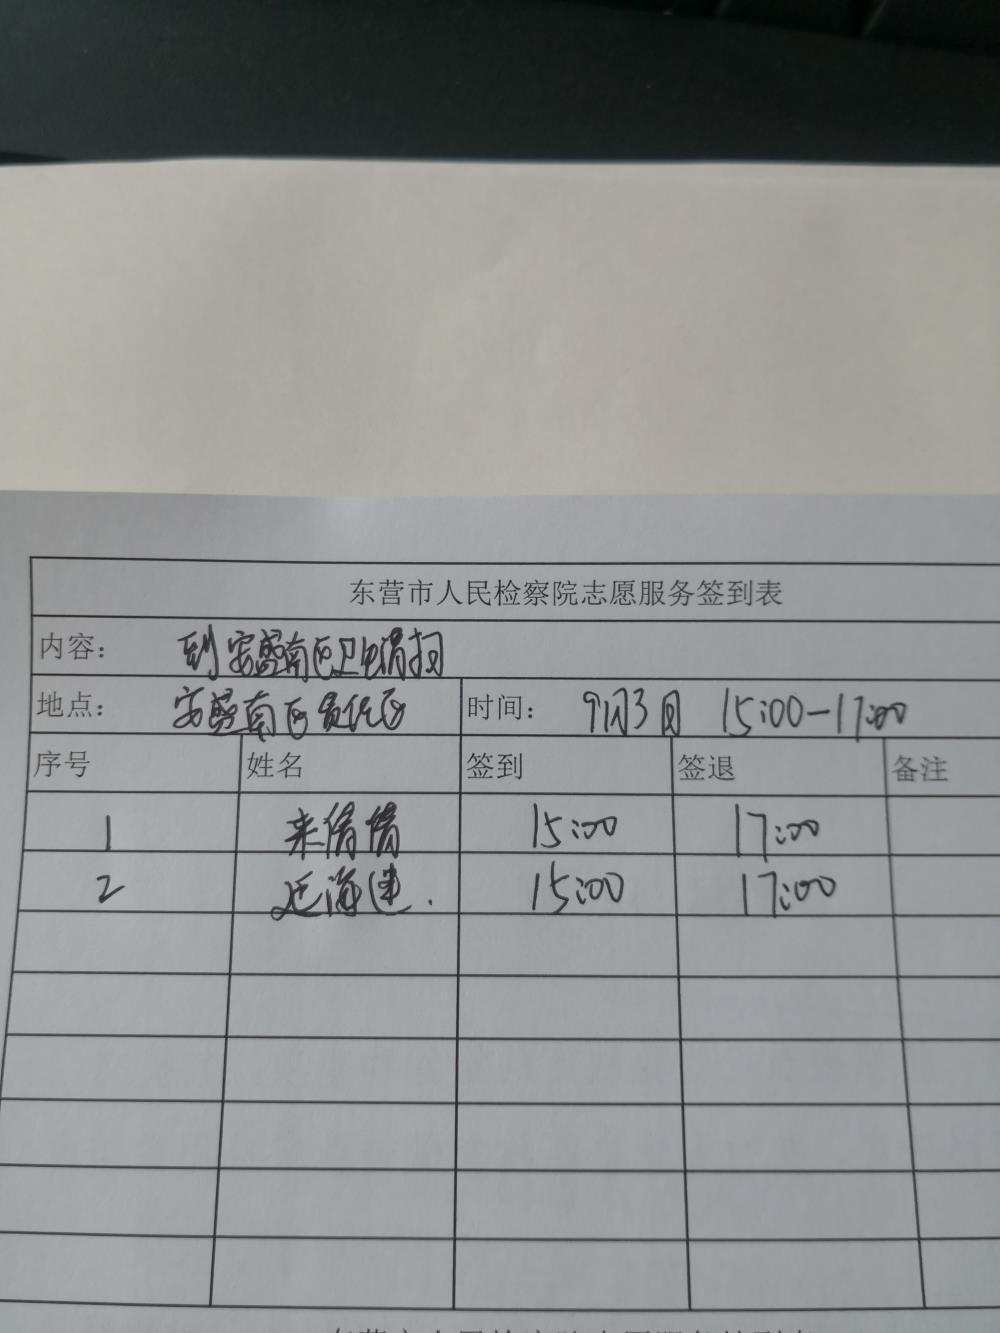 东营市人民检察院志愿服务签到表
内容： 到安盛南区卫生清扫
地点： 安盛南区责任区 时间： 9月3日 15:00-17:00
序号 姓名 签到 签退 备注
1 来倩倩 15:00 17:00
2 延海建. 15:00 17:00